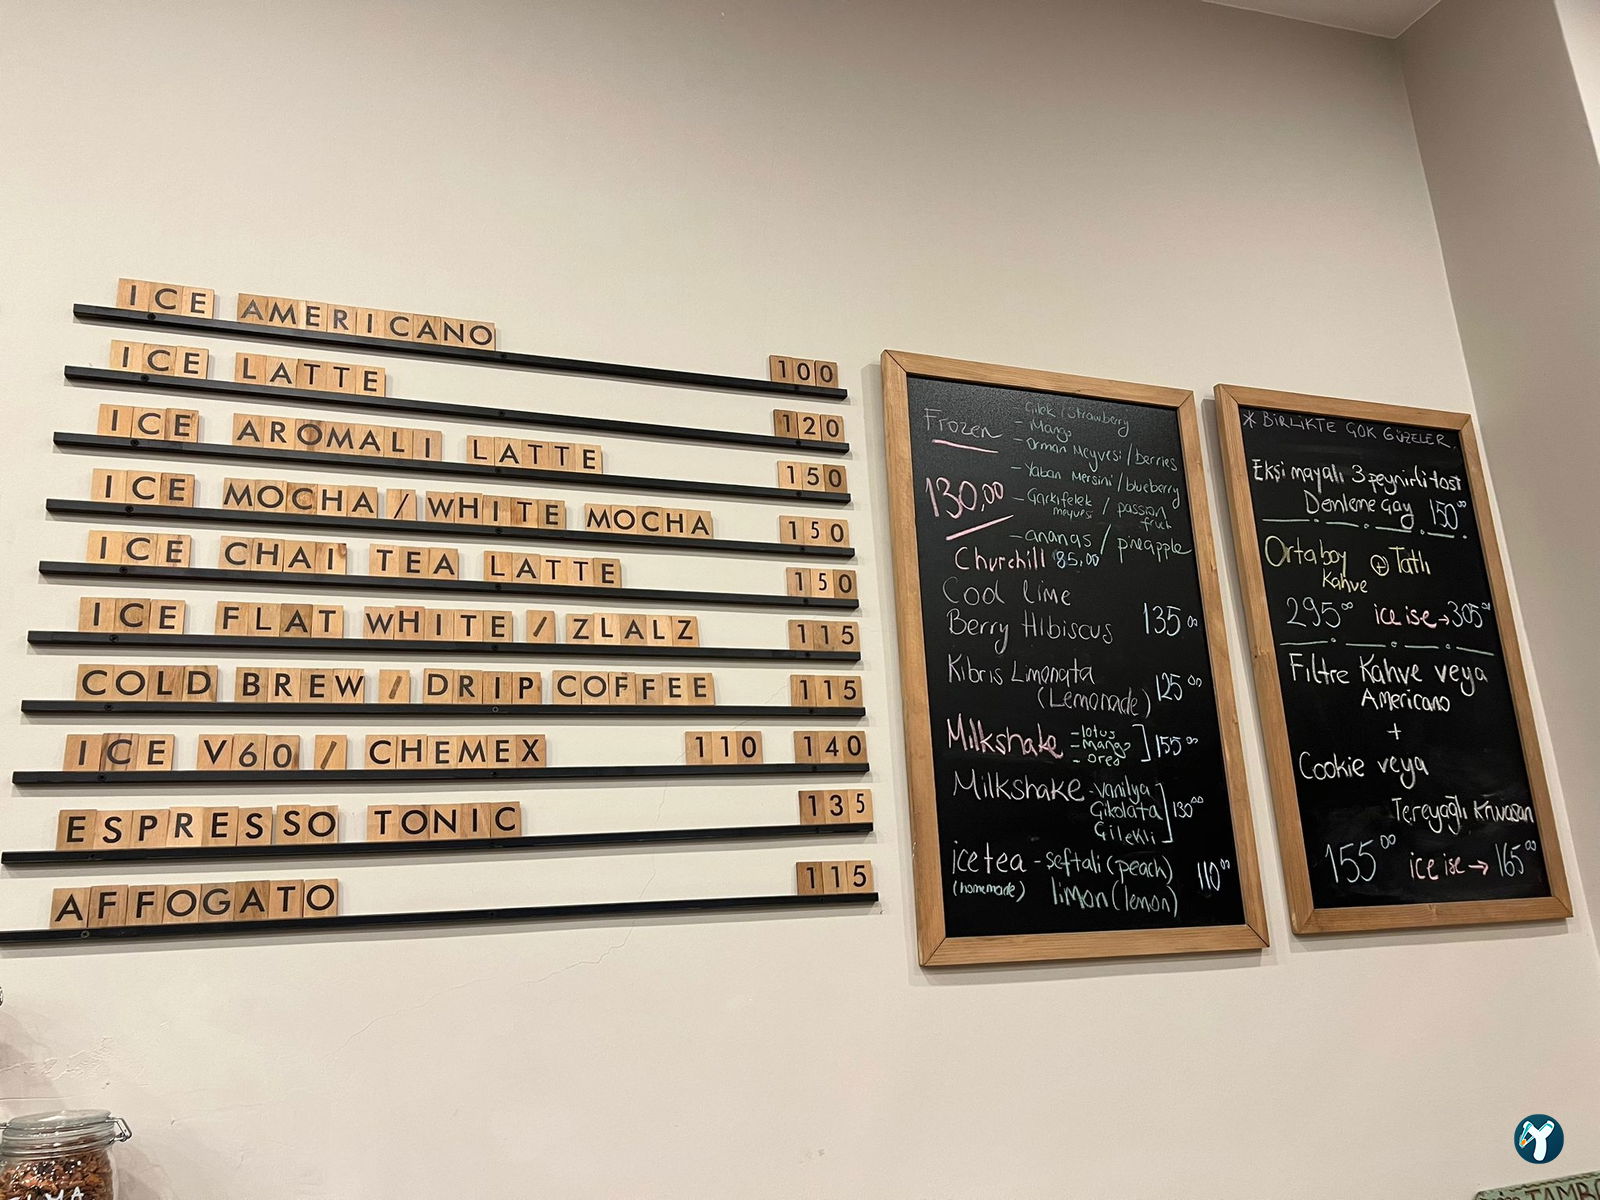 ICE AMERICANO 100
ICE LATTE 120
ICE AROMALI LATTE 150
ICE MOCHA / WHITE MOCHA 150
ICE CHAI TEA LATTE 150
ICE FLAT WHITE / ZLALZ 115
COLD BREW / DRIP COFFEE 115
ICE V60 / CHEMEX 110 140
ESPRESSO TONIC 135
AFFOGATO 115
Frozen
130,00
- Çilek / Strawberry
- Mango
- Orman Meyvesi / berries
- Yaban Mersini / blueberry
- Çarkıfelek meyvesi / passion fruit
- ananas / pineapple
Churchill 85,00
Cool Lime
Berry Hibiscus 135 00
Kıbrıs Limonata
(Lemonade) 125 00
Milkshake - lotus
- Mango
- oreo
155 00
Milkshake - vanilya
Çikolata
Çilekli
130 00
ice tea - şeftali (peach)
(homemade) limon (lemon)
110 00
* BİRLİKTE ÇOK GÜZELER
Ekşi mayalı 3 peynirli tost
Demleme çay 150 00
Ortaboy Kahve + Tatlı
295 00 ice ise → 305 00
Filtre Kahve veya
Americano
+
Cookie veya
Tereyağlı Kruvasan
155 00 ice ise → 165 00